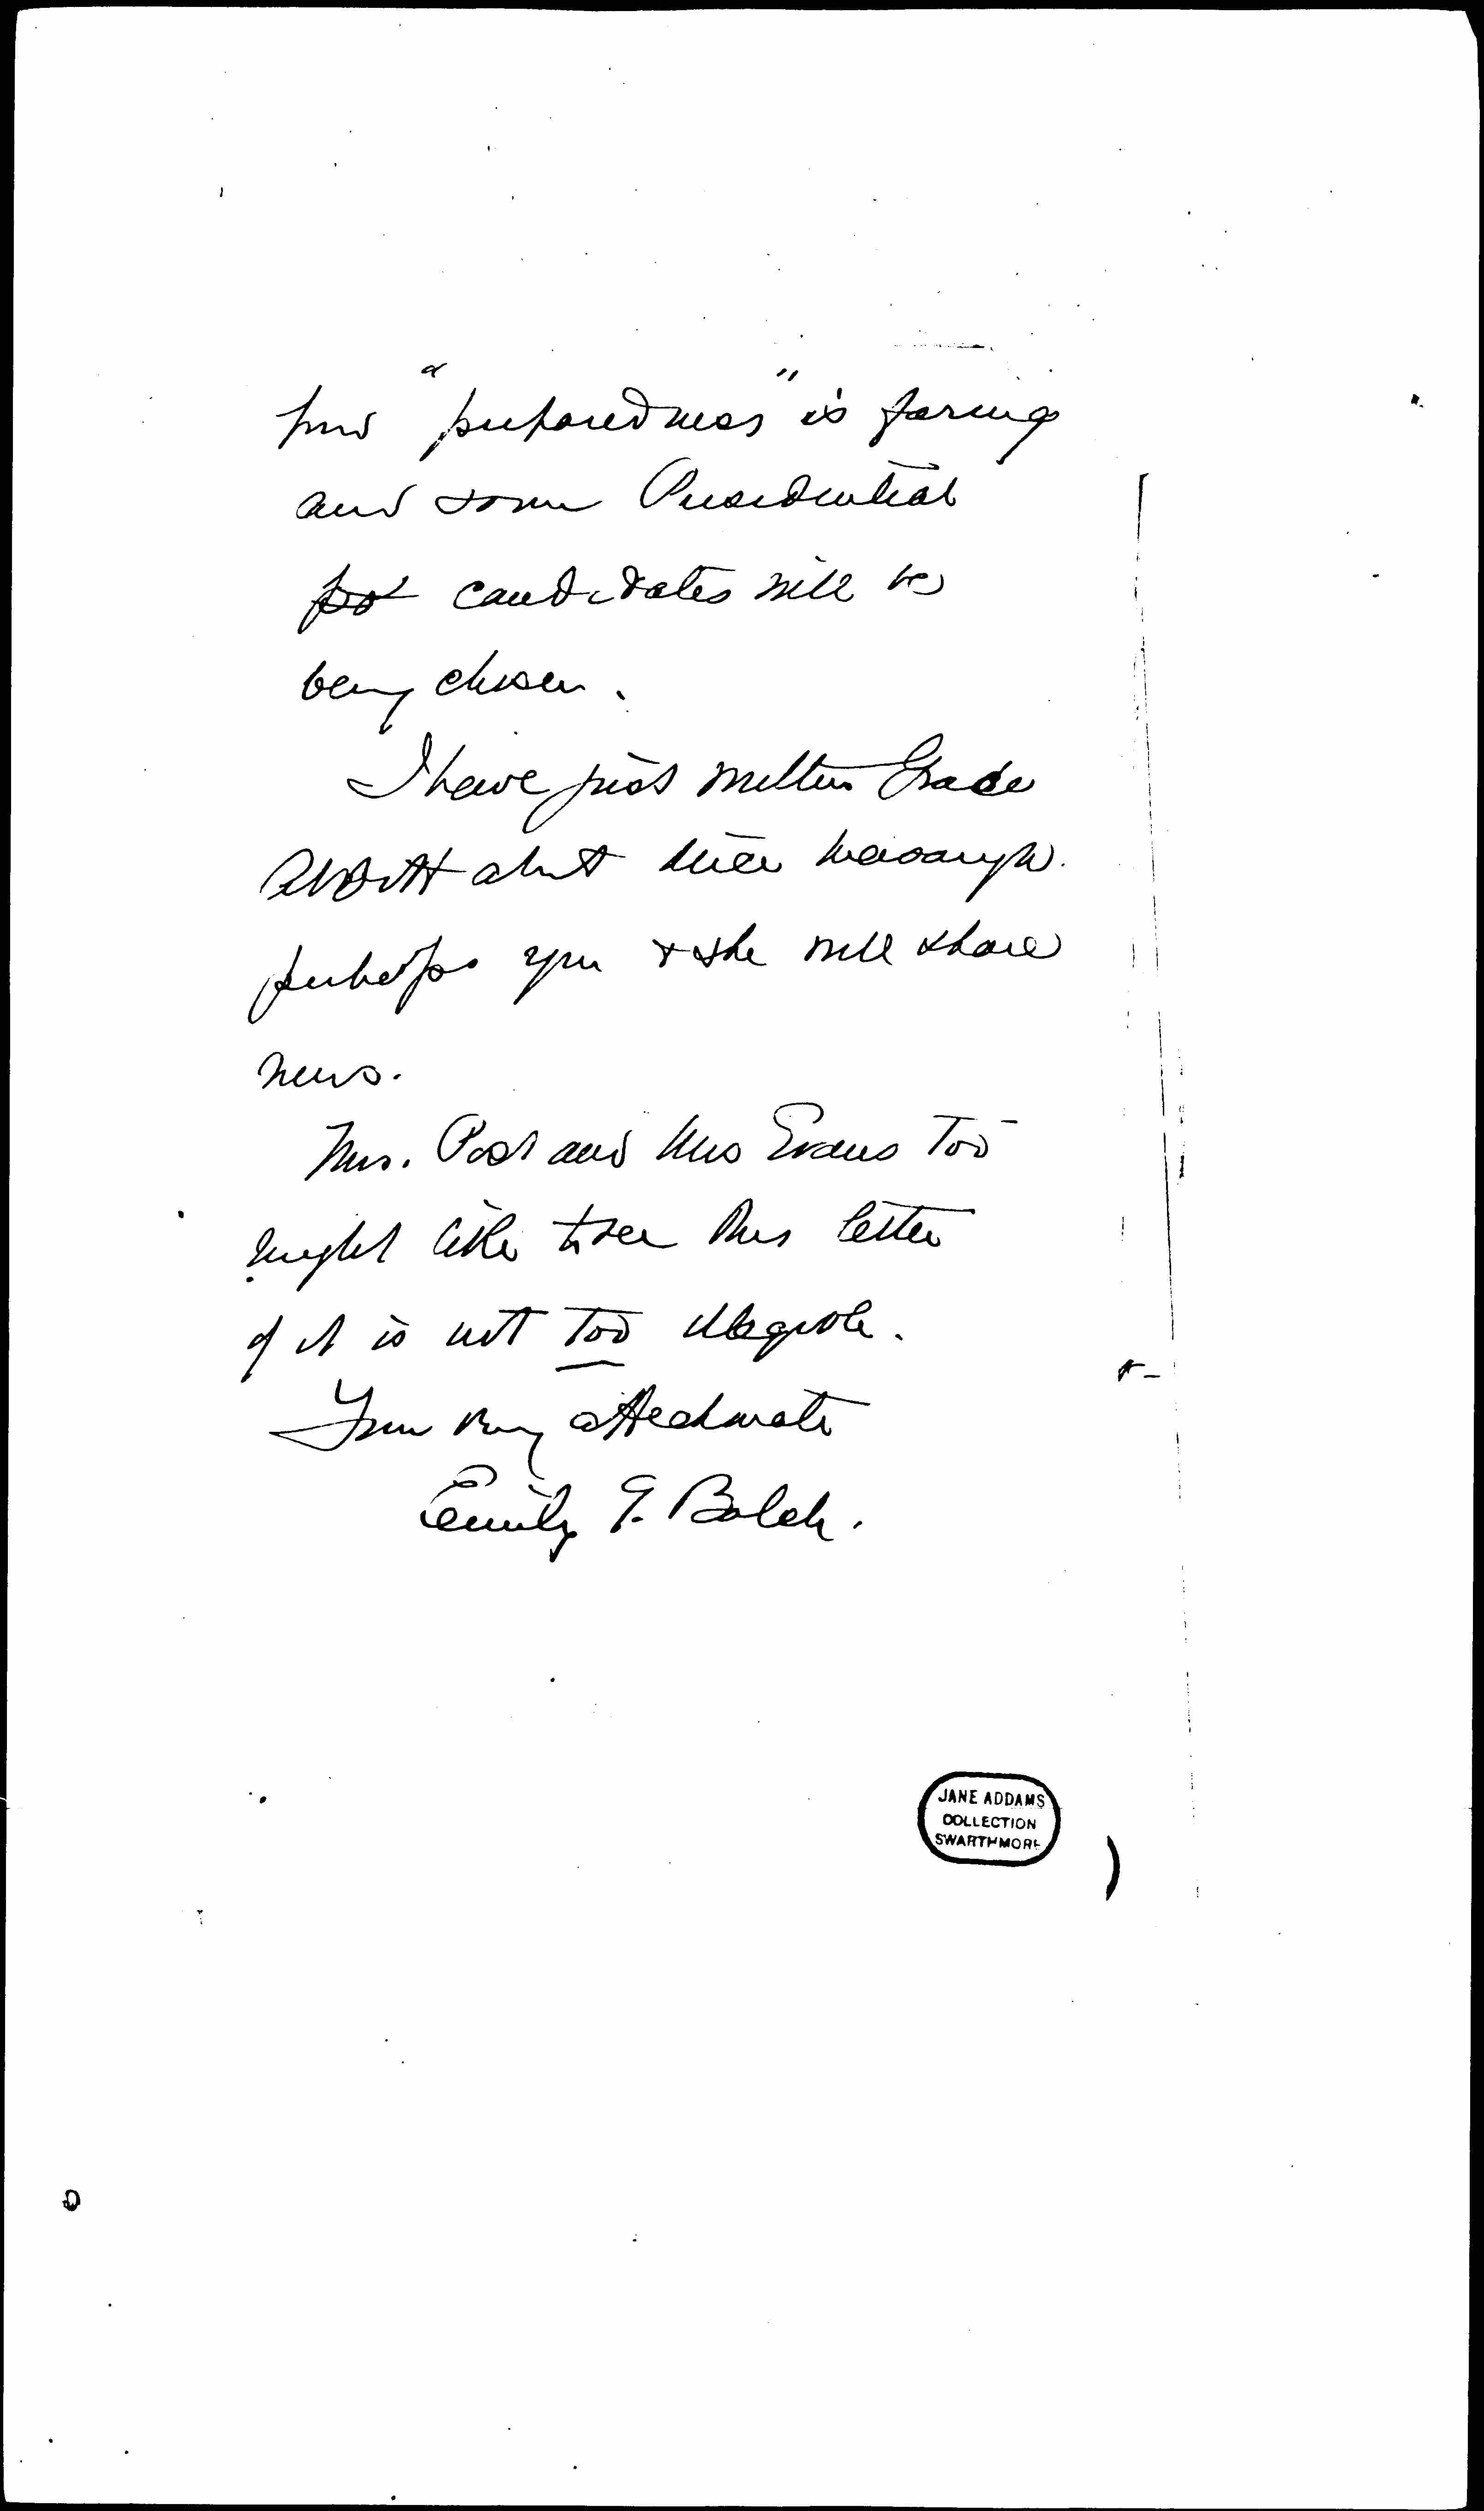 how "preparedness" is faring
and soon Presidential
candidates will be
being chosen.
I have just written Grace
Abbott about
perhaps you & she will share
news.
Mrs. Post and Mrs Evans too
might like to see this letter
if it is not too illegible.
Your very affectionate
Emily G. Balch.
JANE ADDAMS
COLLECTION
SWARTHMORE